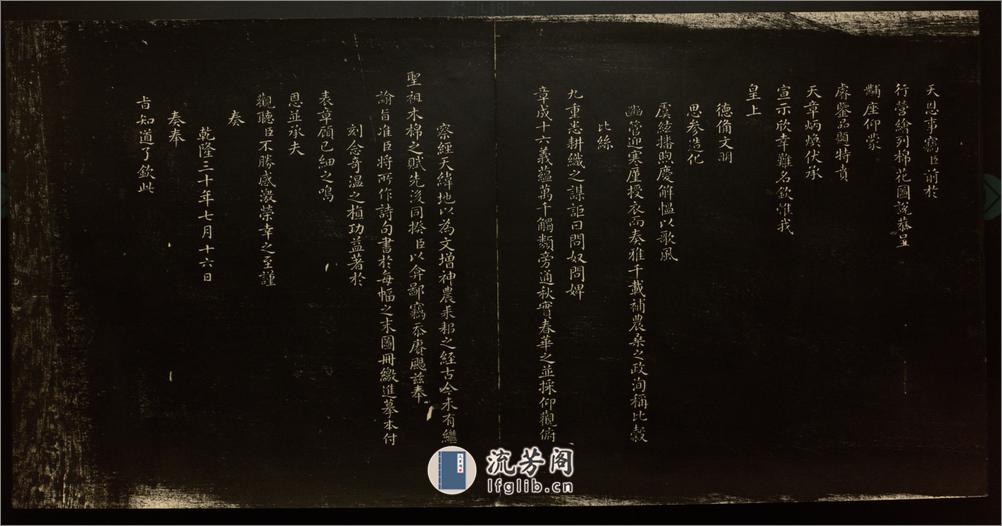 天恩事竊臣前於
行營繪列棉花圖說恭呈
黼座仰蒙
睿鑒品題特賁
天章炳煥伏承
宣示欣幸難名欽惟我
皇上
德備文明
思參造化
虞絃播煦慶解慍以歌風
豳管迎寒廑授衣而奏雅千載補農桑之政洵稱比穀
比絲
九重念耕織之謀詎曰問奴問婢
章成十六義蘊萬千觸類旁通秋實春華之並採仰觀俯
察經天緯地以為文增神農耒耜之經古今未有繼
聖祖木棉之賦先後同揆臣以弇鄙竊忝賡颺茲奉
諭旨准臣將所作詩句書於每幅之末圖冊繳進摹本付
刻念奇溫之植功益著於
表章顧已細之鳴
恩並承夫
觀聽臣不勝感激榮幸之至謹
奏
乾隆三十年七月十六日
奏奉
旨知道了欽此
流芳阁
lfglib.cn